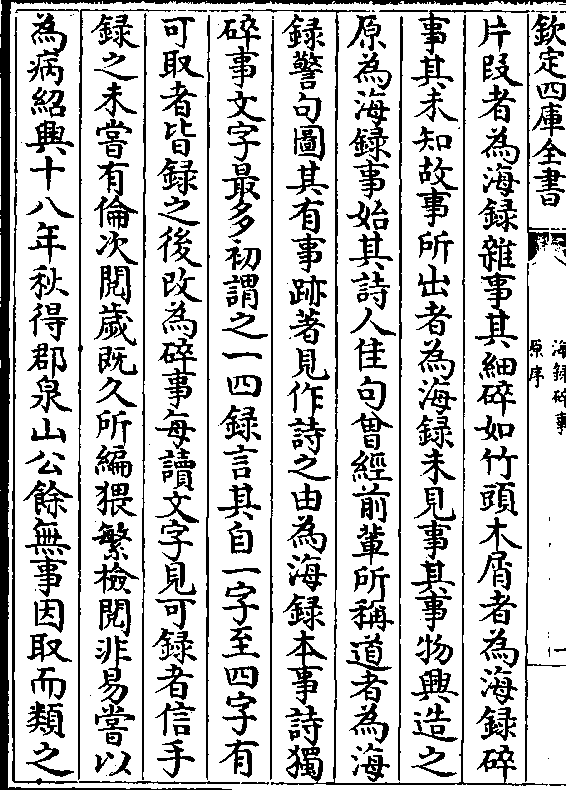 欽定四庫全書
海錄碎事
原序
一
片段者為海録雜事其細碎如竹頭木屑者為海録碎
事其未知故事所出者為海録未見事其事物興造之
原為海録事始其詩人佳句曾經前輩所稱道者為海
録警句圖其有事跡著見作詩之由為海録本事詩獨
碎事文字最多初謂之一四録言其自一字至四字有
可取者皆録之後改為碎事每讀文字見可録者信手
録之未嘗有倫次閲歲既久所編猥繁檢閲非易嘗以
為病紹興十八年秋得郡泉山公餘無事因取而類之